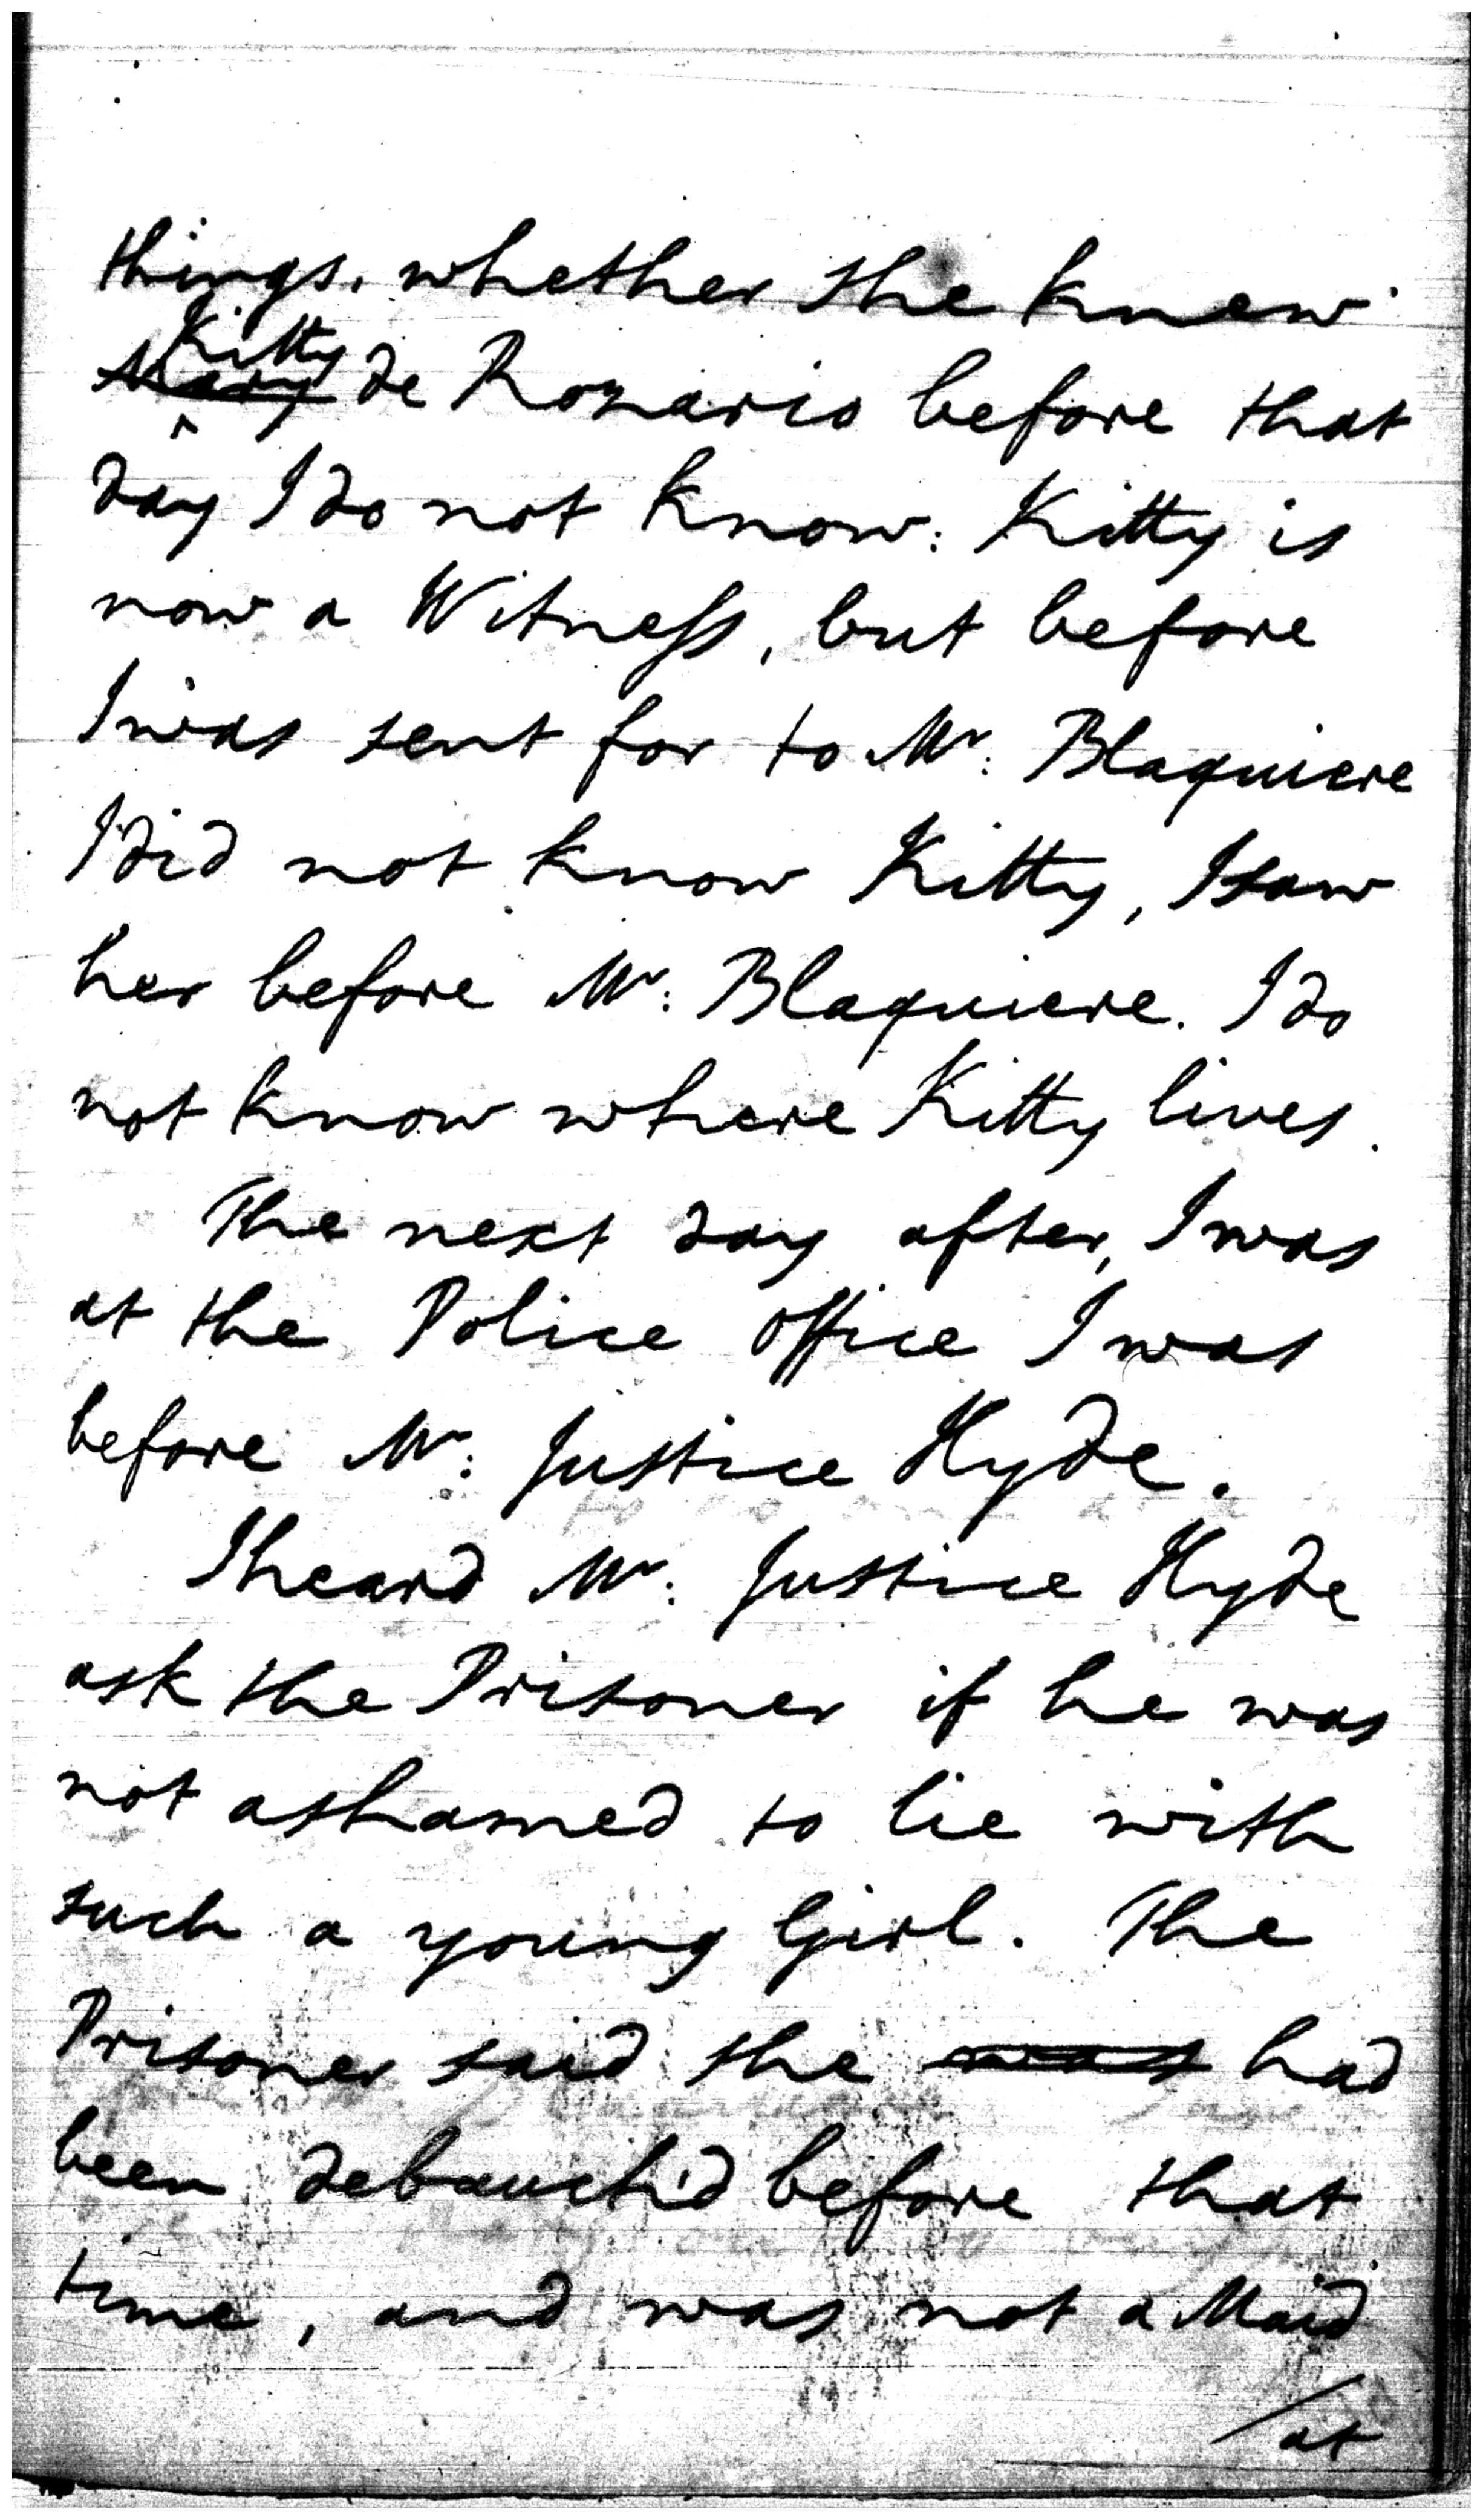 things. whether she knew
Kitty
Mary de Rozario before that
day I do not know: Kitty is
now a Witness, but before
I was sent for to Mr: Blaquiere
I did not know Kitty, I saw
her before Mr: Blaquiere. I do
not know where Kitty lives.
The next day after, I was
at the Police Office I was
before Mr: Justice Hyde.
I heard Mr: Justice Hyde
ask the Prisoner if he was
not ashamed to lie with
such a young Girl. The
Prisoner said she was had
been debauch'd before that
time, and was not a Maid
/at